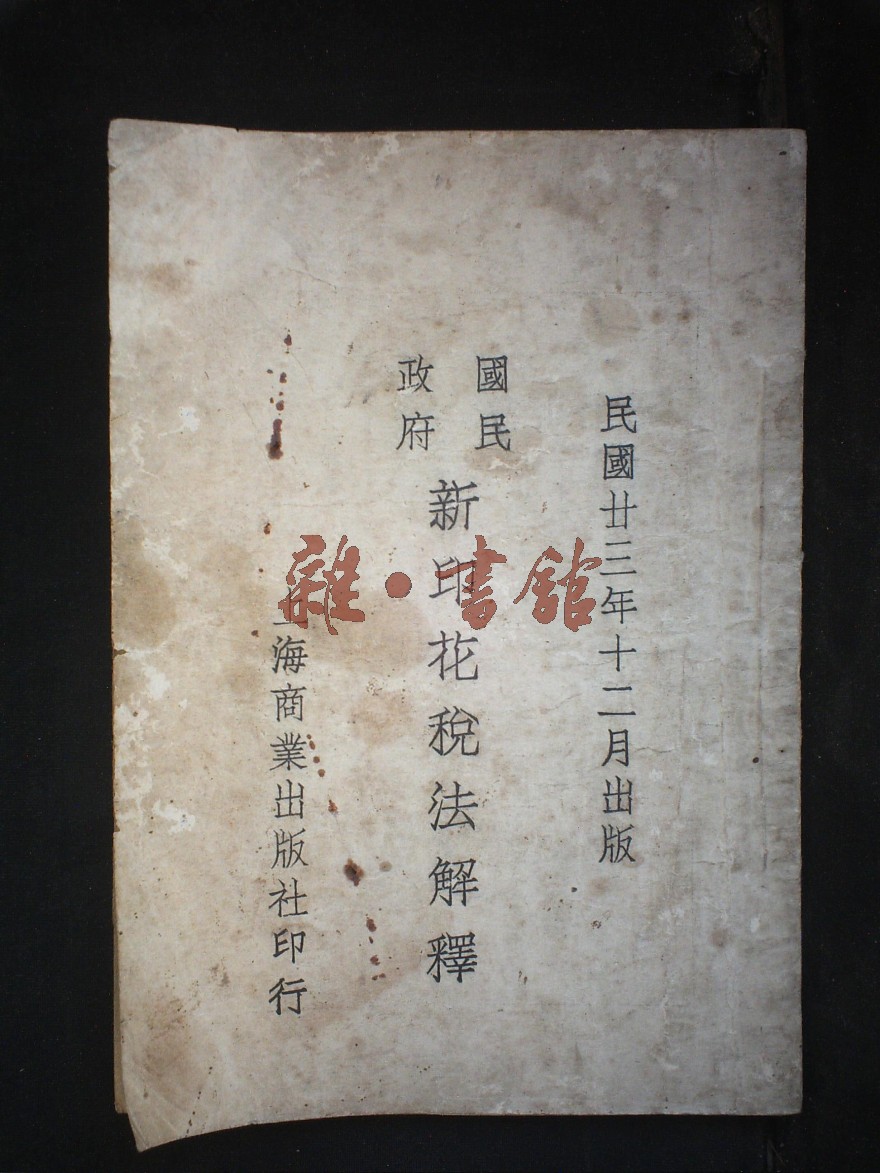 民國廿三年十二月出版
國民
政府
新印花稅法解釋
上海商業出版社印行
雜·書館